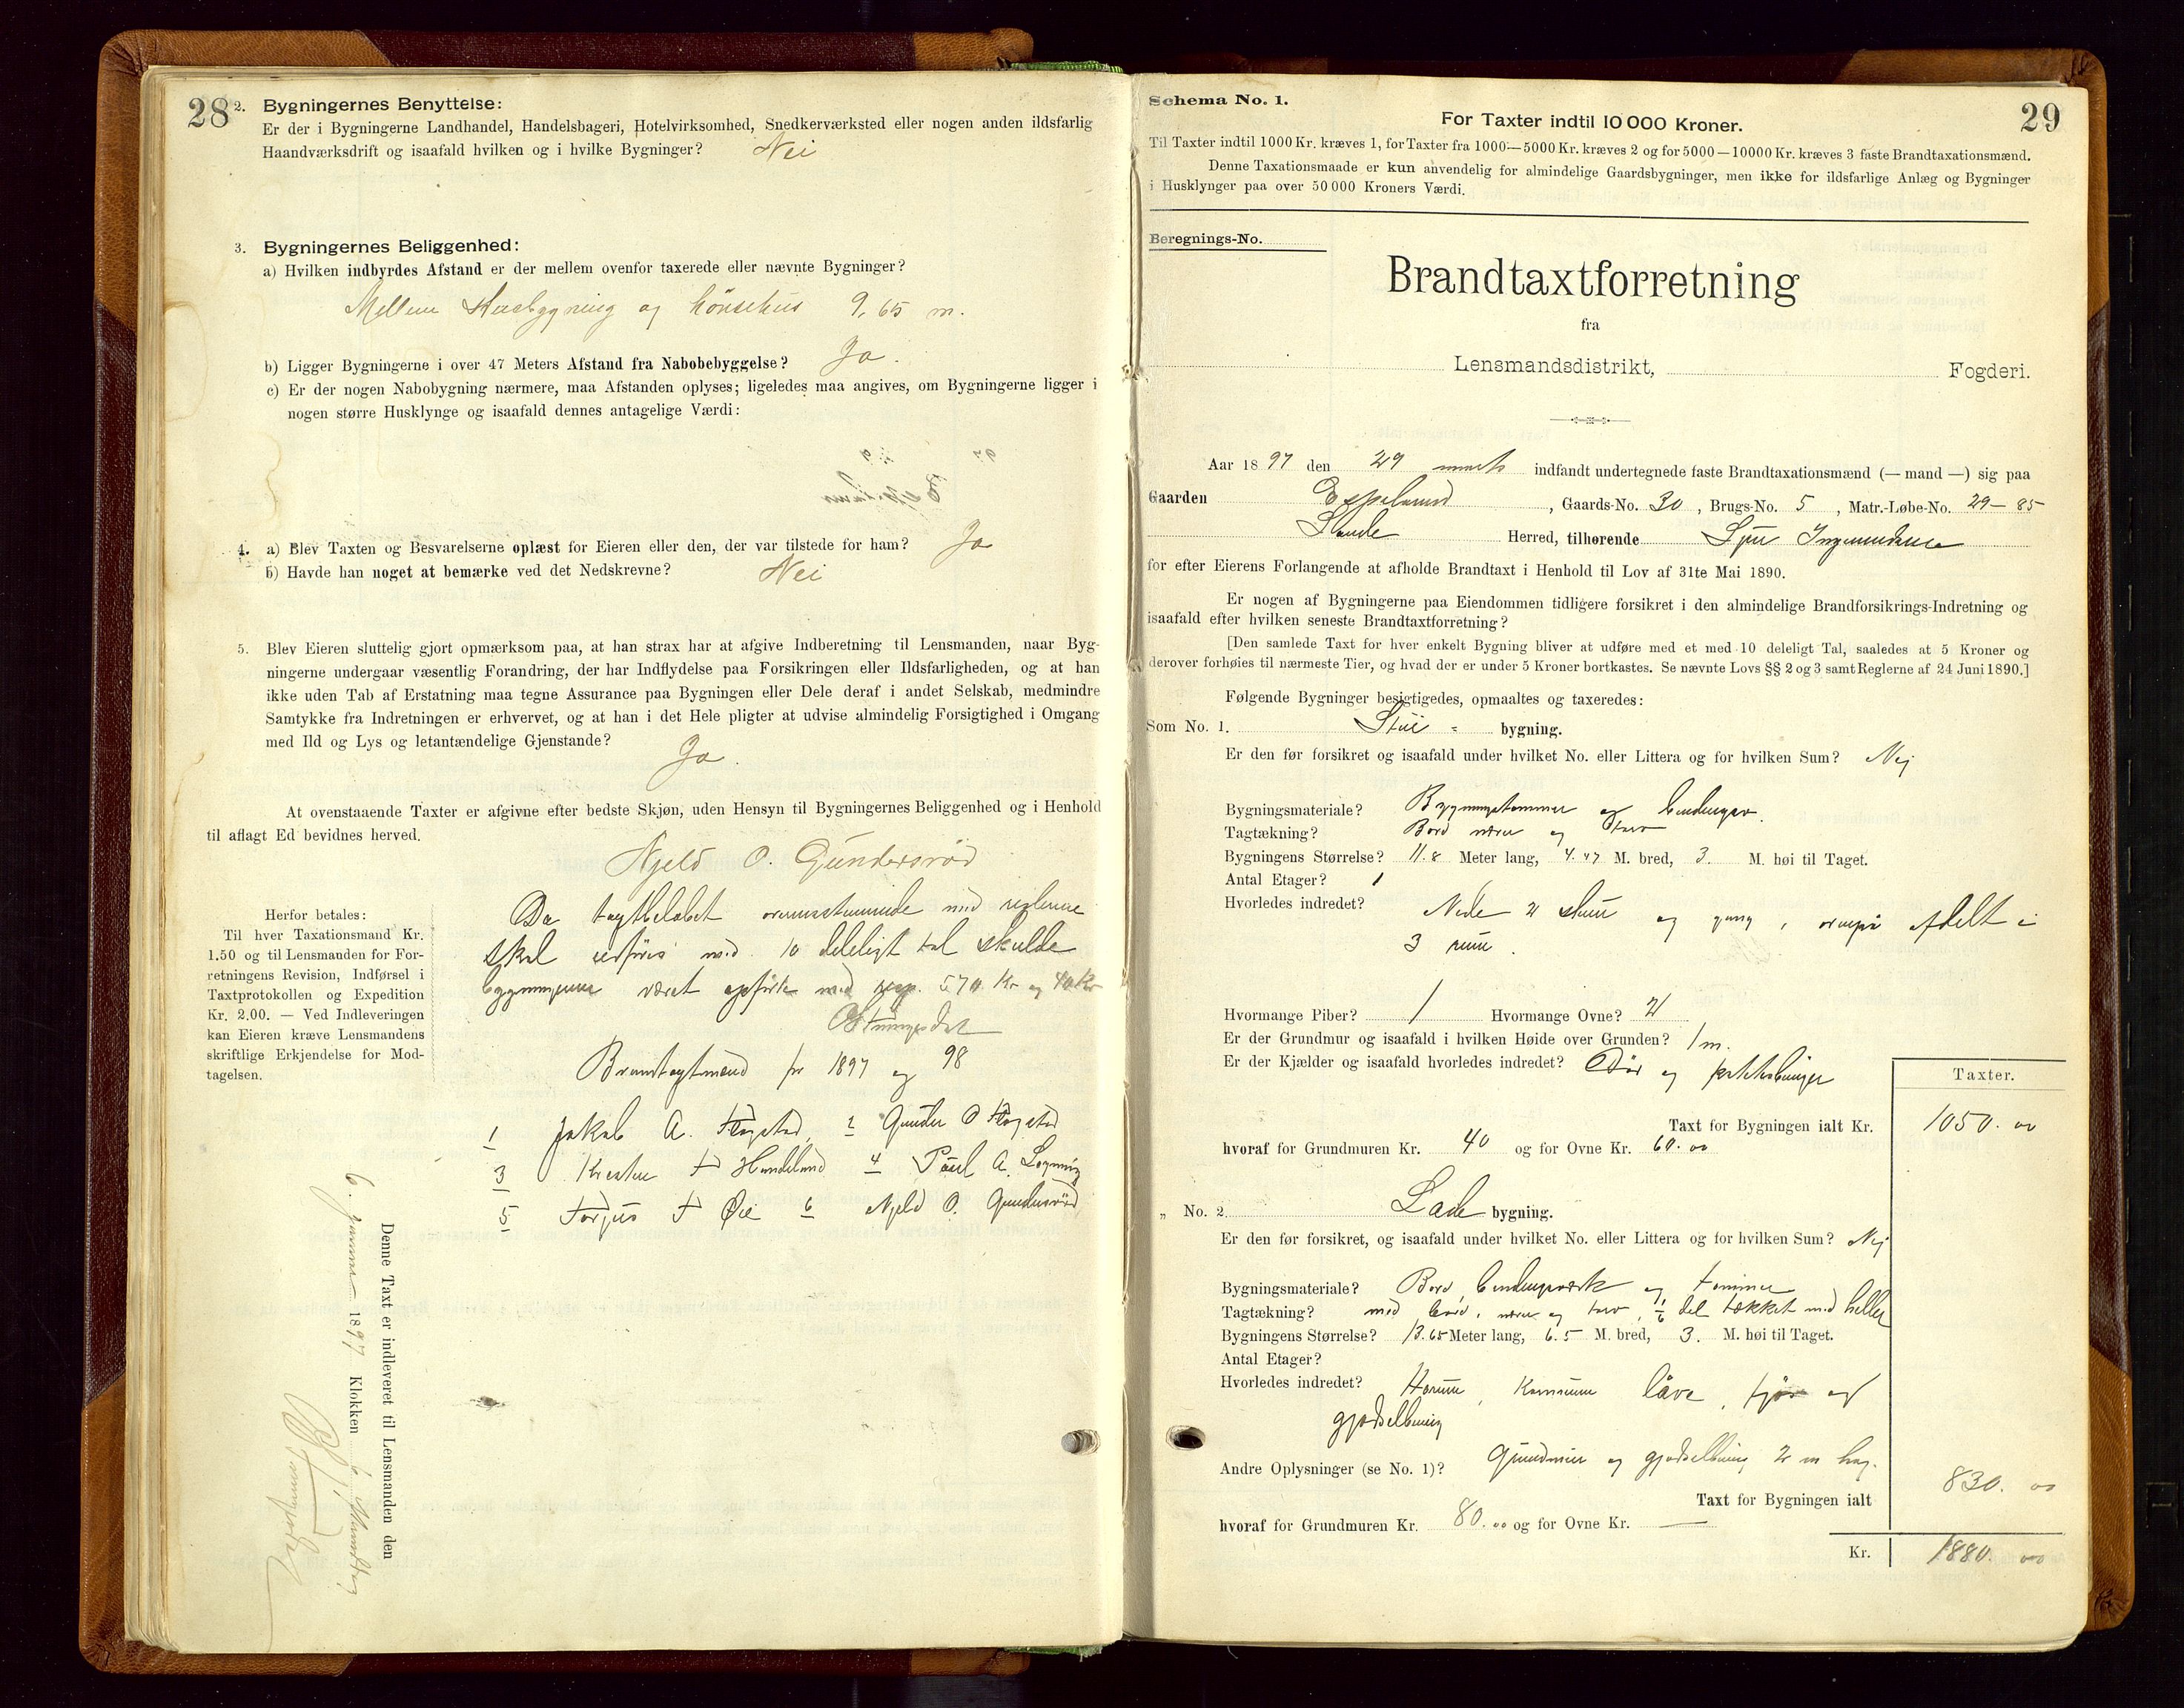 28
2. Bygningernes Benyttelse:
Er der i Bygningerne Landhandel, Handelsbageri, Hotelvirksomhed, Snedkerværksted eller nogen anden ildsfarlig
Haandværksdrift og isaafald hvilken og i hvilke Bygninger? Nei
3. Bygningernes Beliggenhed:
a) Hvilken indbyrdes Afstand er der mellem ovenfor taxerede eller nævnte Bygninger?
Mellem Husbygning og hönsehus 9,65 m.
b) Ligger Bygningerne i over 47 Meters Afstand fra Nabobebyggelse? Ja.
c) Er der nogen Nabobygning nærmere, maa Afstanden oplyses; ligeledes maa angives, om Bygningerne ligger i
nogen større Husklynge og isaafald dennes antagelige Værdi:
4. a) Blev Taxten og Besvarelserne oplæst for Eieren eller den, der var tilstede for ham? Ja
b) Havde han noget at bemærke ved det Nedskrevne? Nei
5. Blev Eieren sluttelig gjort opmærksom paa, at han strax har at afgive Indberetning til Lensmanden, naar Byg-
ningerne undergaar væsentlig Forandring, der har Indflydelse paa Forsikringen eller Ildsfarligheden, og at han
ikke uden Tab af Erstatning maa tegne Assurance paa Bygningen eller Dele deraf i andet Selskab, medmindre
Samtykke fra Indretningen er erhvervet, og at han i det Hele pligter at udvise almindelig Forsigtighed i Omgang
med Ild og Lys og letantændelige Gjenstande? Ja.
At ovenstaaende Taxter er afgivne efter bedste Skjøn, uden Hensyn til Bygningernes Beliggenhed og i Henhold
til aflagt Ed bevidnes herved.
Njeld O. Gundersröd
Herfor betales:
Til hver Taxationsmand Kr.
1.50 og til Lensmanden for For-
retningens Revision, Indførsel i
Taxtprotokollen og Expedition
Kr. 2.00. — Ved Indleveringen
kan Eieren kræve Lensmandens
skriftlige Erkjendelse for Mod-
tagelsen.
Da taxtbeløbet overensstemmende med reglerne
skal udföres med 10 deleligt tal skulde
bygningerne været opförte med resp. 570 Kr og 40 Kr
Brandtaxtmænd for 1897 og 98
1 Jakob A. Hogstad, 2 Gunder O Hogstad
3 Kresten T Handeland 4 Paul A.
5 Torjus T Øie 6 Njeld O. Gundersröd
Denne Taxt er indleveret til Lensmanden den
6. 1897 Klokken 6
Schema No. 1.
29
For Taxter indtil 10 000 Kroner.
Til Taxter indtil 1000 Kr. kræves 1, for Taxter fra 1000—5000 Kr. kræves 2 og for 5000—10000 Kr. kræves 3 faste Brandtaxationsmænd.
Denne Taxationsmaade er kun anvendelig for almindelige Gaardsbygninger, men ikke for ildsfarlige Anlæg og Bygninger
i Husklynger paa over 50 000 Kroners Værdi.
Beregnings-No.
Brandtaxtforretning
fra
Lensmandsdistrikt, Fogderi.
Aar 1897 den 29 marts indfandt undertegnede faste Brandtaxationsmænd (— mand —) sig paa
Gaarden Espeland, Gaards-No. 30, Brugs-No. 5, Matr.-Løbe-No. 29–85
Herred, tilhørende
for efter Eierens Forlangende at afholde Brandtaxt i Henhold til Lov af 31te Mai 1890.
Er nogen af Bygningerne paa Eiendommen tidligere forsikret i den almindelige Brandforsikrings-Indretning og
isaafald efter hvilken seneste Brandtaxtforretning?
[Den samlede Taxt for hver enkelt Bygning bliver at udføre med et med 10 deleligt Tal, saaledes at 5 Kroner og
derover forhøies til nærmeste Tier, og hvad der er under 5 Kroner bortkastes. Se nævnte Lovs §§ 2 og 3 samt Reglerne af 24 Juni 1890.]
Følgende Bygninger besigtigedes, opmaaltes og taxeredes:
Som No. 1. Stue- bygning.
Er den før forsikret og isaafald under hvilket No. eller Littera og for hvilken Sum? Nej
Bygningsmateriale? Bygningstømmer og bindingsv.
Tagtækning? Bord næver og torv
Bygningens Størrelse? 11.8 Meter lang, 4.47 M. bred, 3. M. høi til Taget.
Antal Etager? 1
Hvorledes indredet? Nede 2 stuer og gang, ovenpå afdelt i
3 rum.
Hvormange Piber? 1 Hvormange Ovne? 2
Er der Grundmur og isaafald i hvilken Høide over Grunden? 1 m.
Er der Kjælder og isaafald hvorledes indredet? Dör og potetesbinger
Taxter.
Taxt for Bygningen ialt Kr. 1050.00
hvoraf for Grundmuren Kr. 40 og for Ovne Kr. 60.00
„ No. 2. Lade bygning.
Er den før forsikret, og isaafald under hvilket No. eller Littera og for hvilken Sum? Nej
Bygningsmateriale? Bord, bindingsværk og tømmer
Tagtækning? med bord, næver og torv, 1/6 del tækket med heller
Bygningens Størrelse? 13.65 Meter lang, 6.5 M. bred, 3. M. høi til Taget.
Antal Etager?
Hvorledes indredet? Hörum, Kornrum låve, fjös og
gjødselbinig
Andre Oplysninger (se No. 1)? Grundmur og gjødselbinig 2 m høg.
Taxt for Bygningen ialt 830.00
hvoraf for Grundmuren Kr. 80.00 og for Ovne Kr. —
Kr. 1880.00